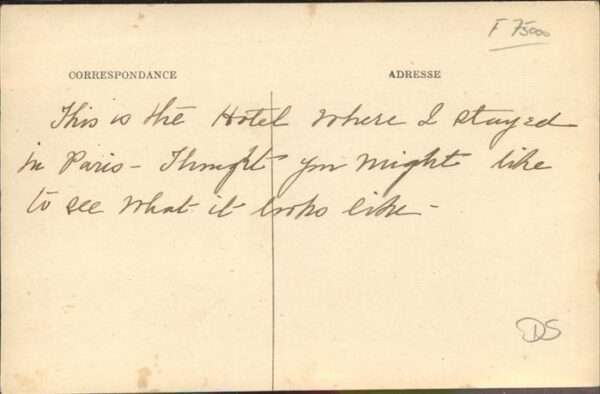 F 75000
CORRESPONDANCE ADRESSE
This is the Hotel where I stayed
in Paris - Thought you might like
to see what it looks like -
DS